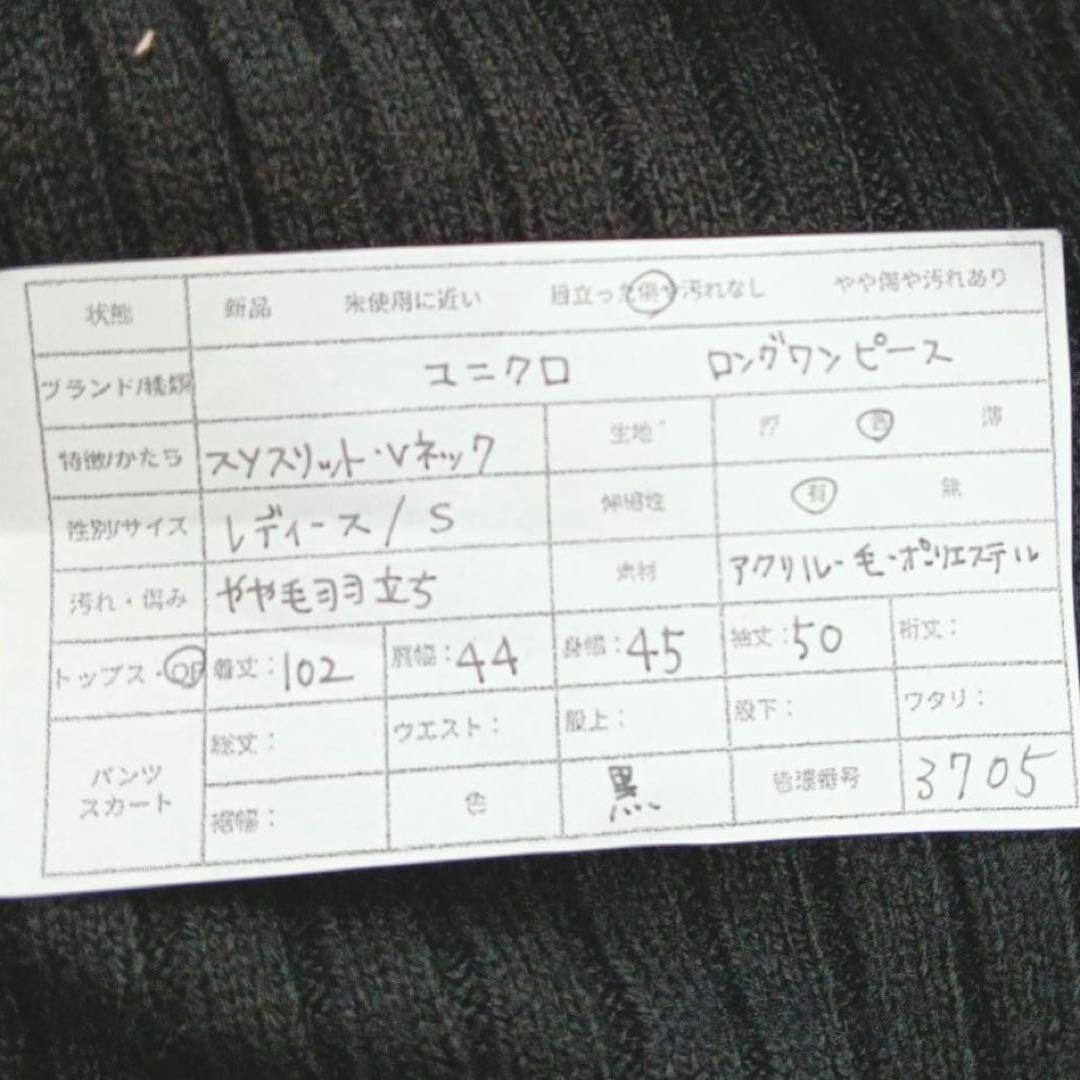 状態 新品 未使用に近い 目立った傷や汚れなし やや傷や汚れあり
ブランド/種類 ユニクロ ロングワンピース
特徴/かたち スソスリット・Vネック 生地 厚 普 薄
性別/サイズ レディース/S 伸縮性 有 無
汚れ・傷み やや毛羽立ち 素材 アクリル・毛・ポリエステル
トップス・OP 着丈：102 肩幅：44 身幅：45 袖丈：50 裄丈：
パンツ スカート 総丈： ウエスト： 股上： 股下： ワタリ：
裾幅： 色 黒 管理番号 3705